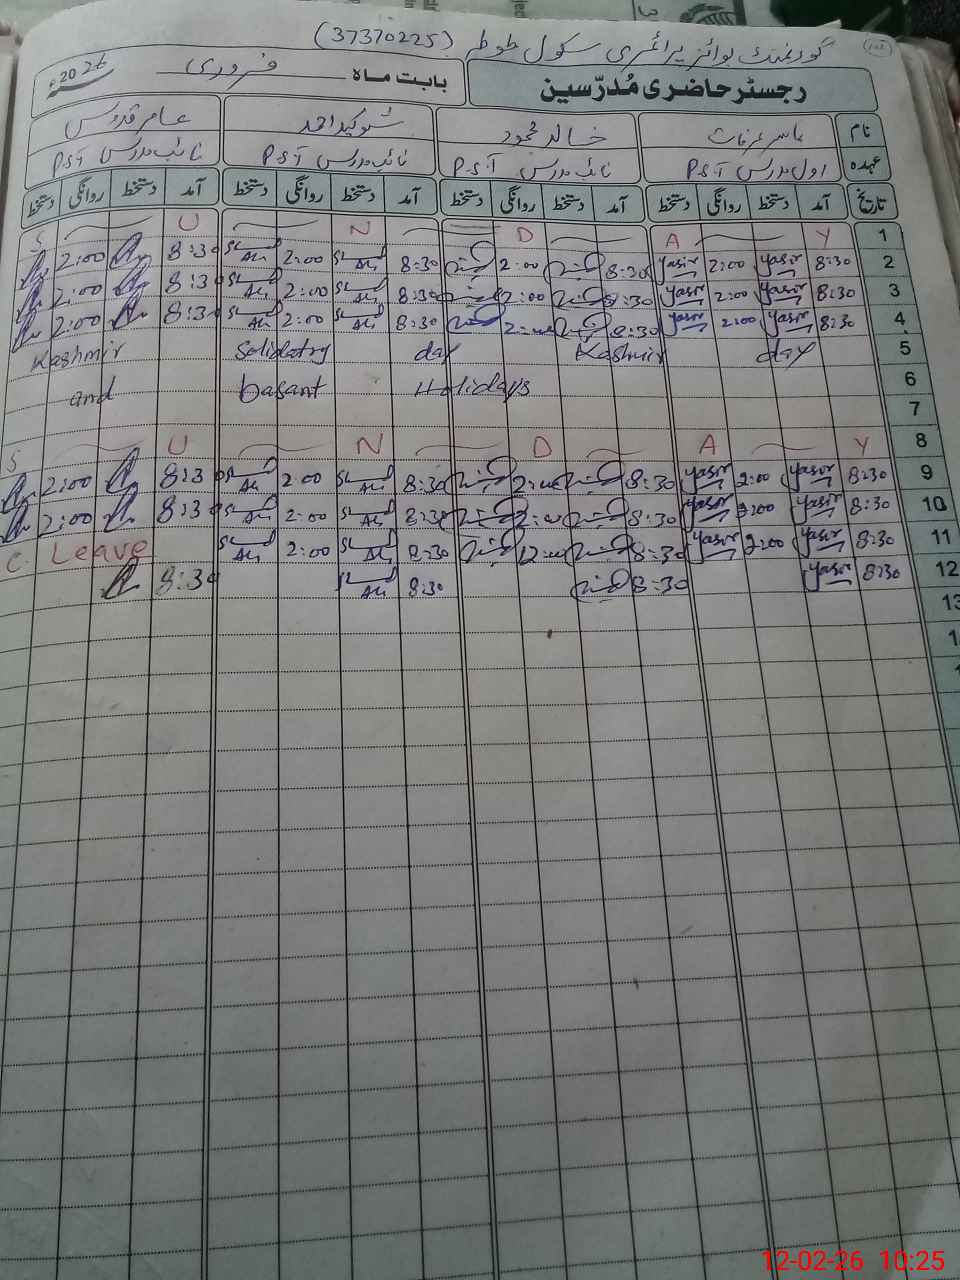 گورنمنٹ بوائز پرائمری سکول طوطہ (37370225)
رجسٹر حاضری مُدرّسین بابت ماہ فروری 2026ء
نام یاسر عرفات خالد محمود شکیل احمد عامر قدوس
عہدہ اول مدرس PST نائب مدرس PST نائب مدرس PST نائب مدرس PST
تاریخ آمد دستخط روانگی دستخط آمد دستخط روانگی دستخط آمد دستخط روانگی دستخط آمد دستخط روانگی دستخط
S U N D A Y 1
2:00 8:30 2:00 8:30 2:00 8:30 Yasir 2:00 Yasir 8:30 2
2:00 8:30 2:00 8:30 2:00 8:30 Yasir 2:00 Yasir 8:30 3
2:00 8:30 2:00 8:30 2:00 8:30 Yasir 2:00 Yasir 8:30 4
Kashmir Solidatry day Kashmir day 5
and basant Holidays 6
7
S U N D A Y 8
2:00 8:30 2:00 8:30 2:00 8:30 Yasir 2:00 Yasir 8:30 9
2:00 8:30 2:00 8:30 2:00 8:30 Yasir 2:00 Yasir 8:30 10
C. Leave 2:00 8:30 12:00 8:30 Yasir 2:00 Yasir 8:30 11
8:30 8:30 8:30 Yasir 8:30 12
13
12-02-26 10:25